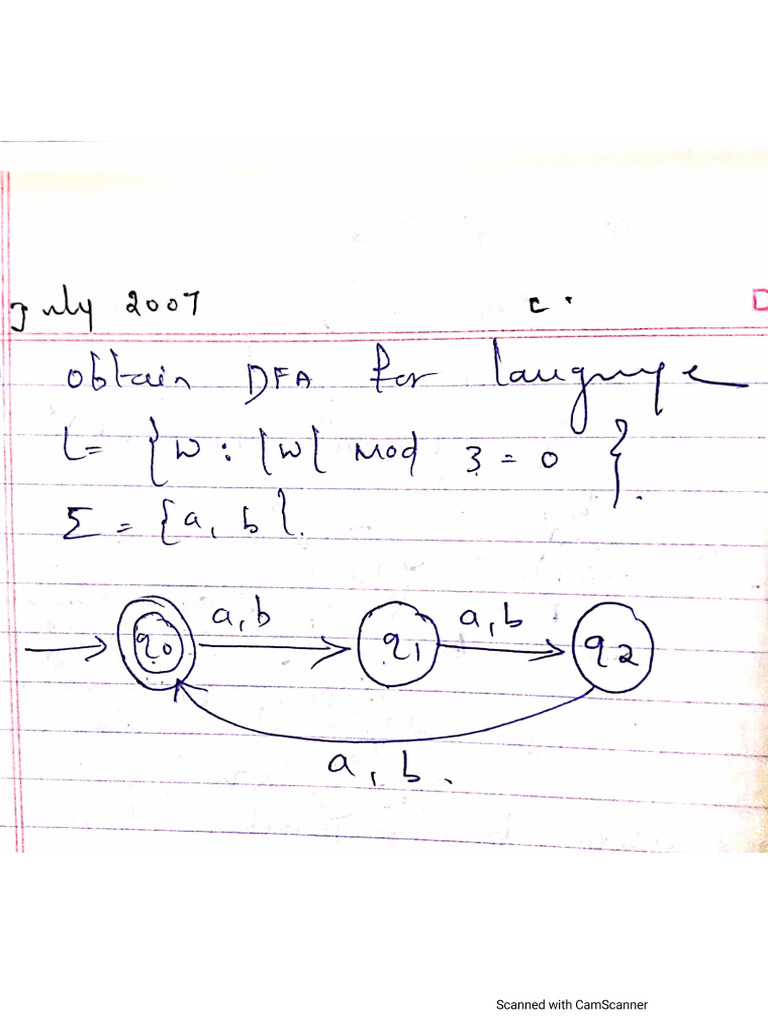 July 2007 c.
D
obtain DFA for language
L= {w : |w| mod 3 = 0 }.
Σ = {a, b}.
a,b a,b
q0 q1 q2
a, b.
Scanned with CamScanner